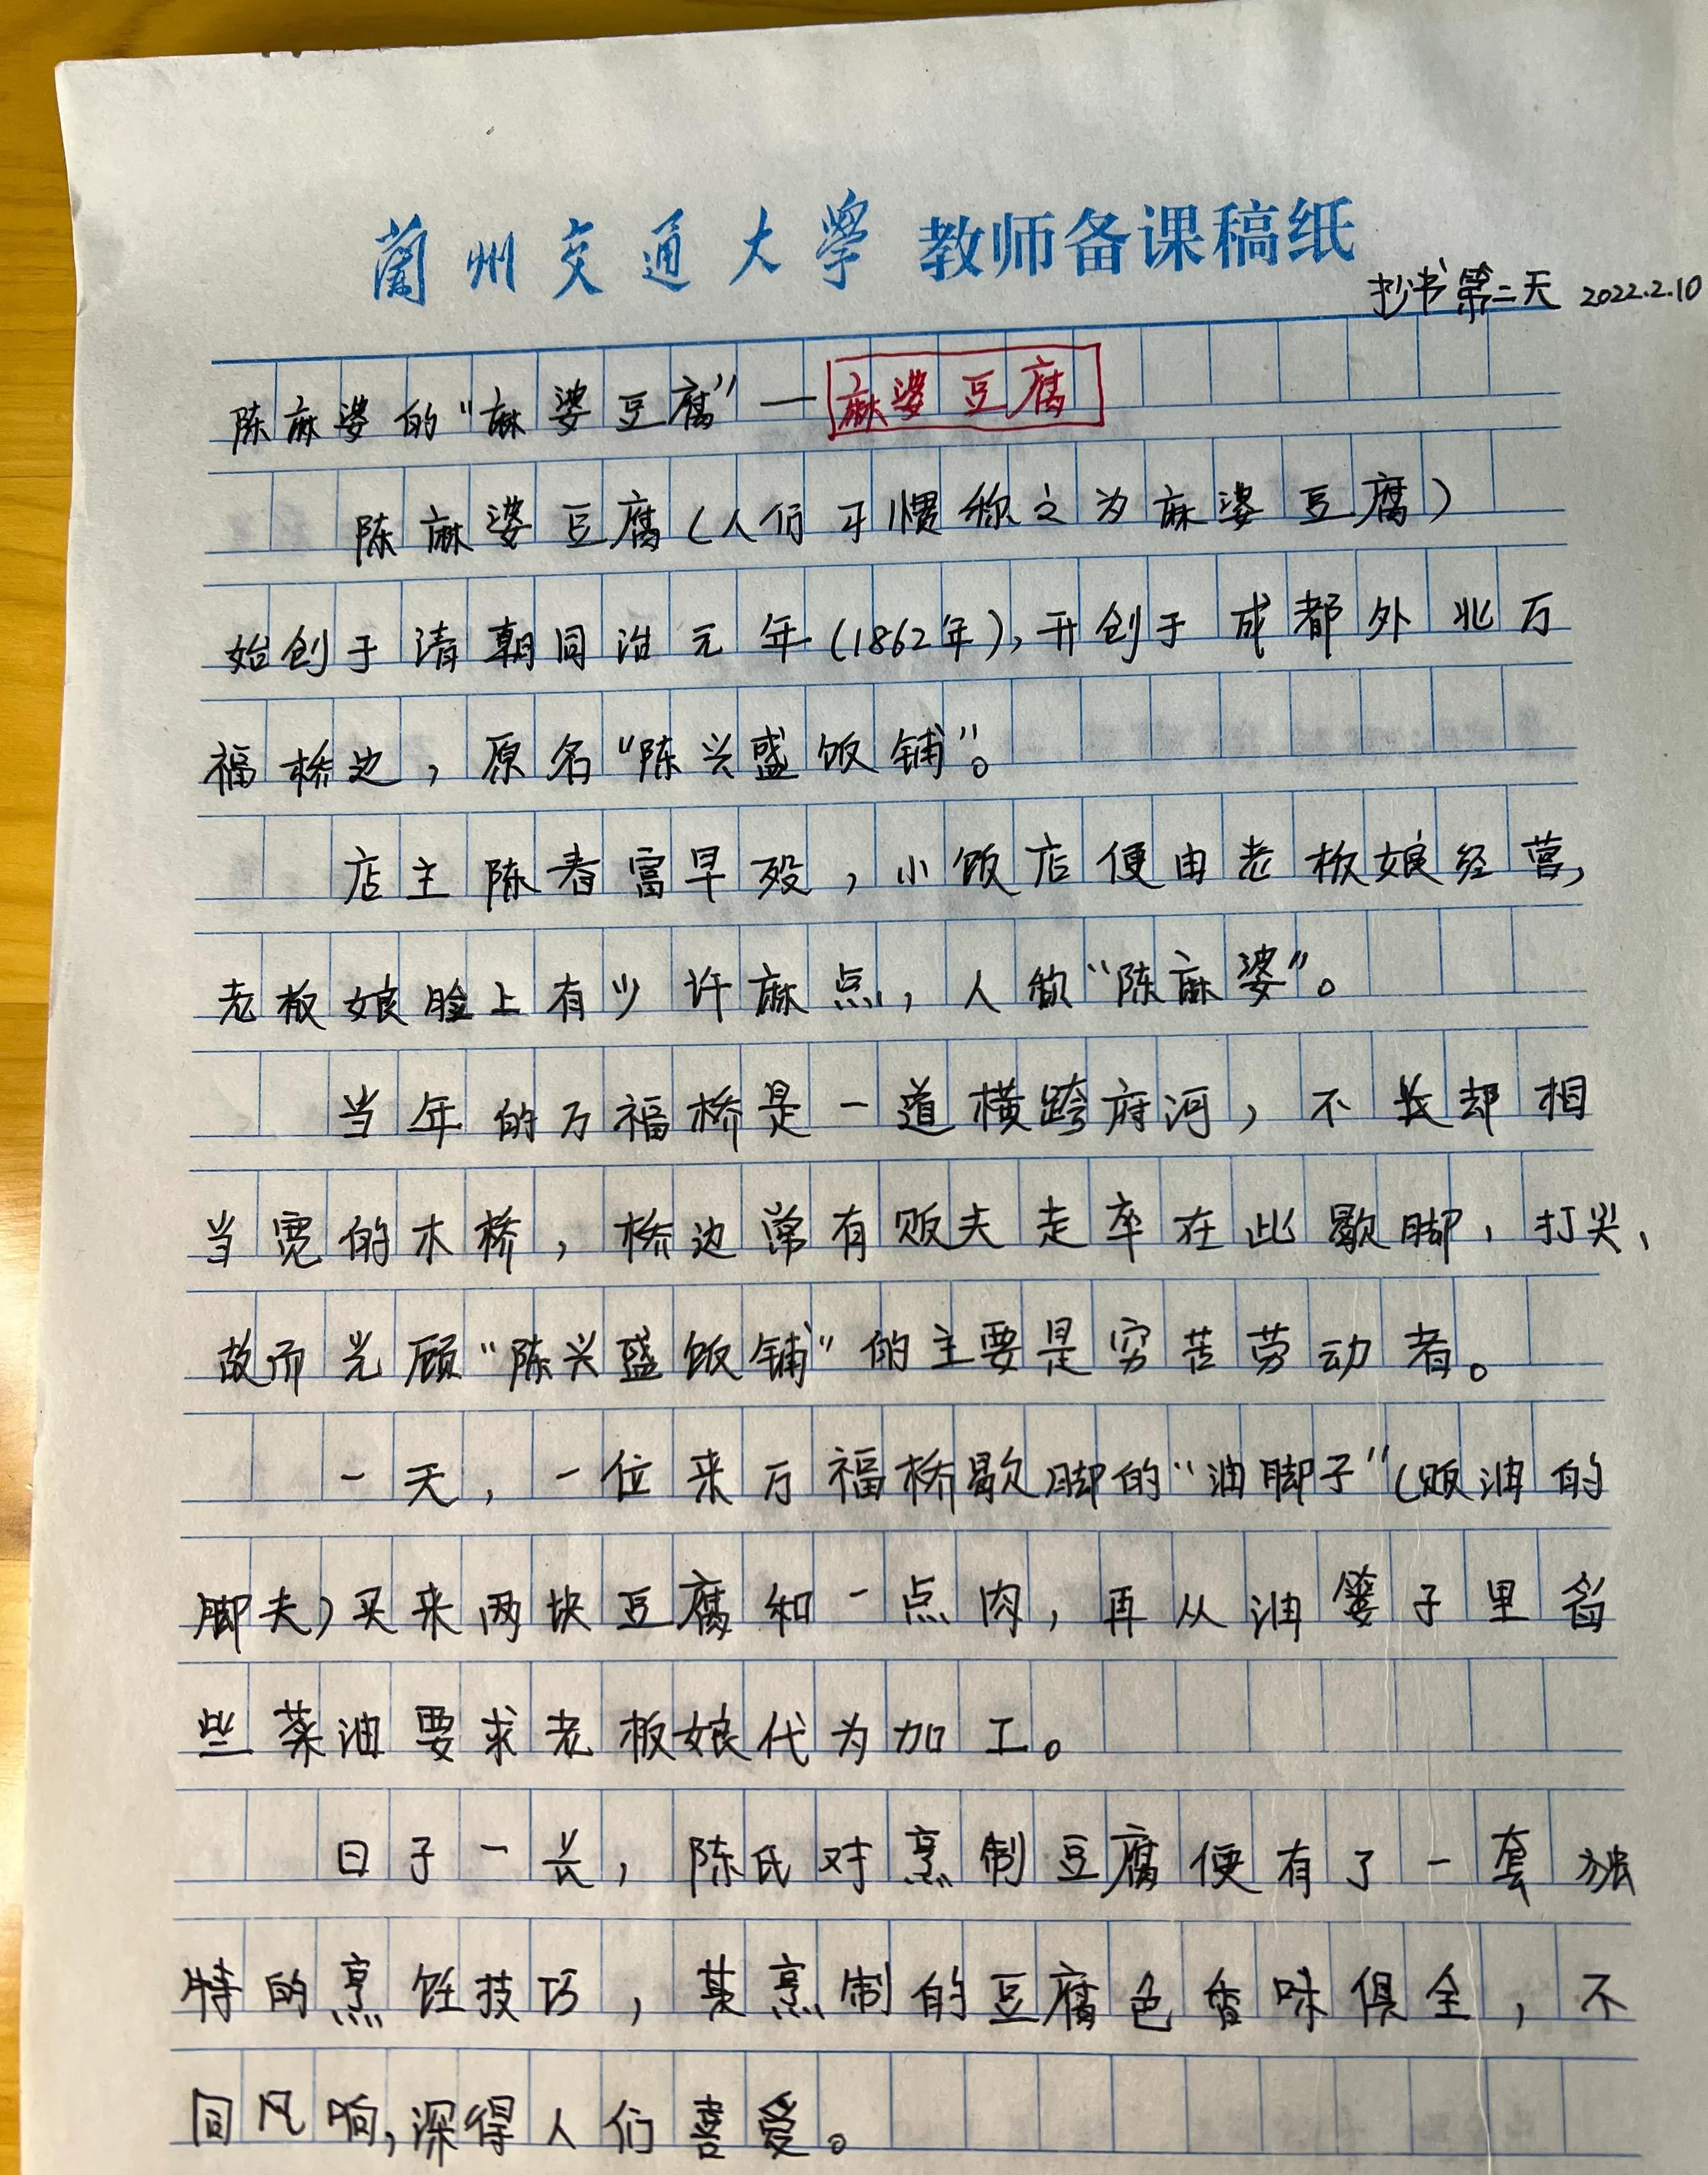 蘭州交通大學 教师备课稿纸
抄书第二天 2022.2.10
陈麻婆的“麻婆豆腐”—麻婆豆腐
陈麻婆豆腐(人们习惯称之为麻婆豆腐)
始创于清朝同治元年(1862年),开创于成都外北万
福桥边,原名“陈兴盛饭铺”。
店主陈春富早殁,小饭店便由老板娘经营,
老板娘脸上有少许麻点,人称“陈麻婆”。
当年的万福桥是一道横跨府河,不长却相
当宽的木桥,桥边常有贩夫走卒在此歇脚、打尖、
故而光顾“陈兴盛饭铺”的主要是穷苦劳动者。
一天,一位来万福桥歇脚的“油脚子”(贩油的
脚夫)买来两块豆腐和一点肉,再从油篓子里舀
些菜油要求老板娘代为加工。
日子一长,陈氏对烹制豆腐便有了一套独
特的烹饪技巧,其烹制的豆腐色香味俱全,不
同风响,深得人们喜爱。